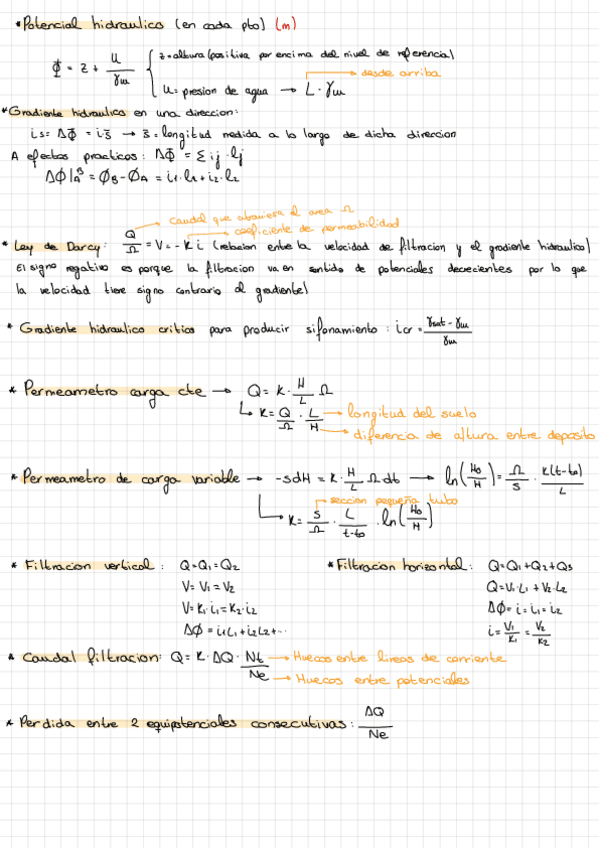 *Potencial hidraulico (en cada pto) (m)
Φ = z + u/γω { z = altura (positiva por encima del nivel de referencia)
u = presion de agua → L · γω desde arriba
*Gradiente hidraulico en una direccion:
is = ΔΦ = i·s → s = longitud medida a lo largo de dicha direccion
A efectos practicos: ΔΦ = Σ ij · lj
ΔΦ|AB = ΦB - ΦA = i1·l1 + i2·l2
caudal que atraviesa el area Ω
coeficiente de permeabilidad
* Ley de Darcy: Q/Ω = V = - K i (relacion entre la velocidad de filtracion y el gradiente hidraulico)
El signo negativo es porque la filtracion va en sentido de potenciales decrecientes por lo que
la velocidad tiene signo contrario al gradiente)
* Gradiente hidraulico critico para producir sifonamiento: icr = γsat - γω / γω
* Permeametro carga cte → Q = K · H/L Ω
↳ K = Q/Ω · L/H → longitud del suelo
→ diferencia de altura entre deposito
* Permeametro de carga variable → -sdH = K · H/L Ω dt → ln(H0/H) = Ω/S · K(t-to)/L
→ seccion pequeña tubo
↳ K = S/Ω · L/t-to · ln(H0/H)
* Filtracion vertical: Q = Q1 = Q2
V = V1 = V2
V = K1·i1 = K2·i2
ΔΦ = i1L1 + i2L2 + ···
* Filtracion horizontal: Q = Q1 + Q2 + Q3
Q = V1·L1 + V2·L2
ΔΦ = i = i1 = i2
i = V1/K1 = V2/K2
* Caudal filtracion: Q = K · ΔQ · Nt/Ne → Huecos entre lineas de corriente
→ Huecos entre potenciales
* Perdida entre 2 equipotenciales consecutivas: ΔQ/Ne